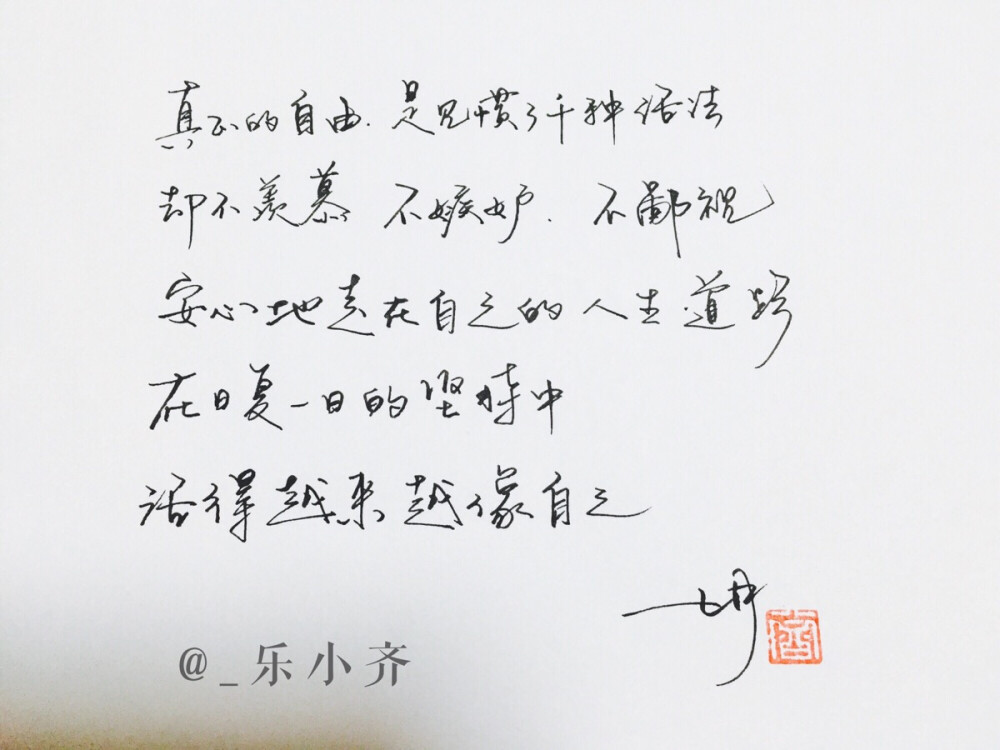 真正的自由.是见惯了千种活法
却不羡慕 不嫉妒.不鄙视
安心地走在自己的人生道路
在日复一日的坚持中
活得越来越像自己
@_乐小齐